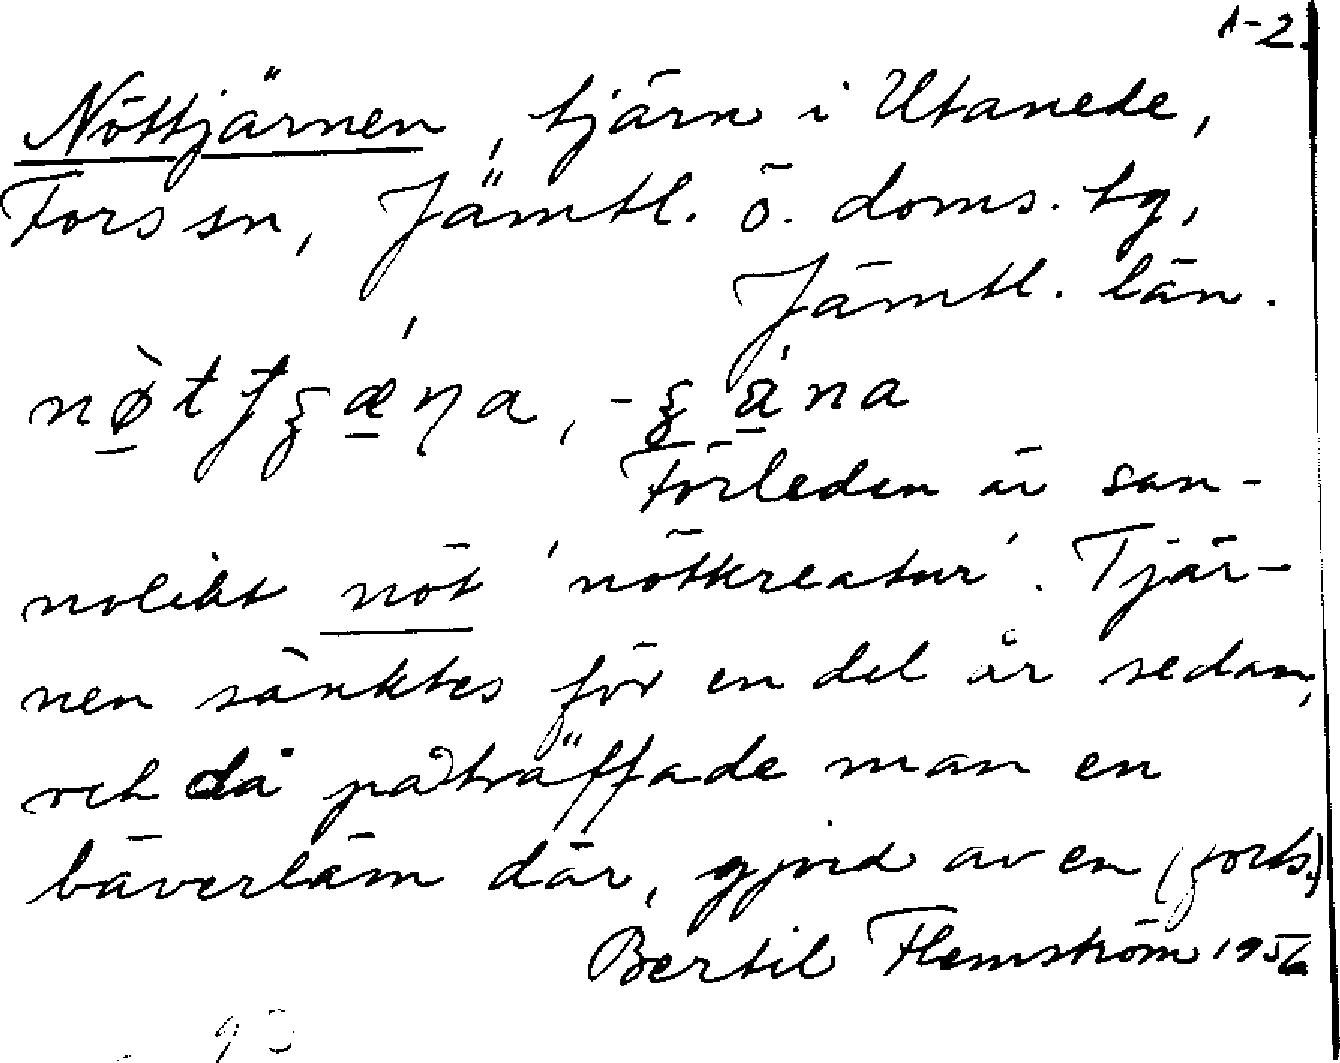 1-2.
Nöttjärnen, tjärn i Utanede,
Fors sn, Jämtl. ö. doms. tg,
Jämtl. län.
Förleden är san-
nolikt nöt 'nötkreatur'. Tjär-
nen sänktes för en del år sedan,
och då påträffade man en
bäverläm där, gjord av en (forts.)
Bertil Flemström 1956